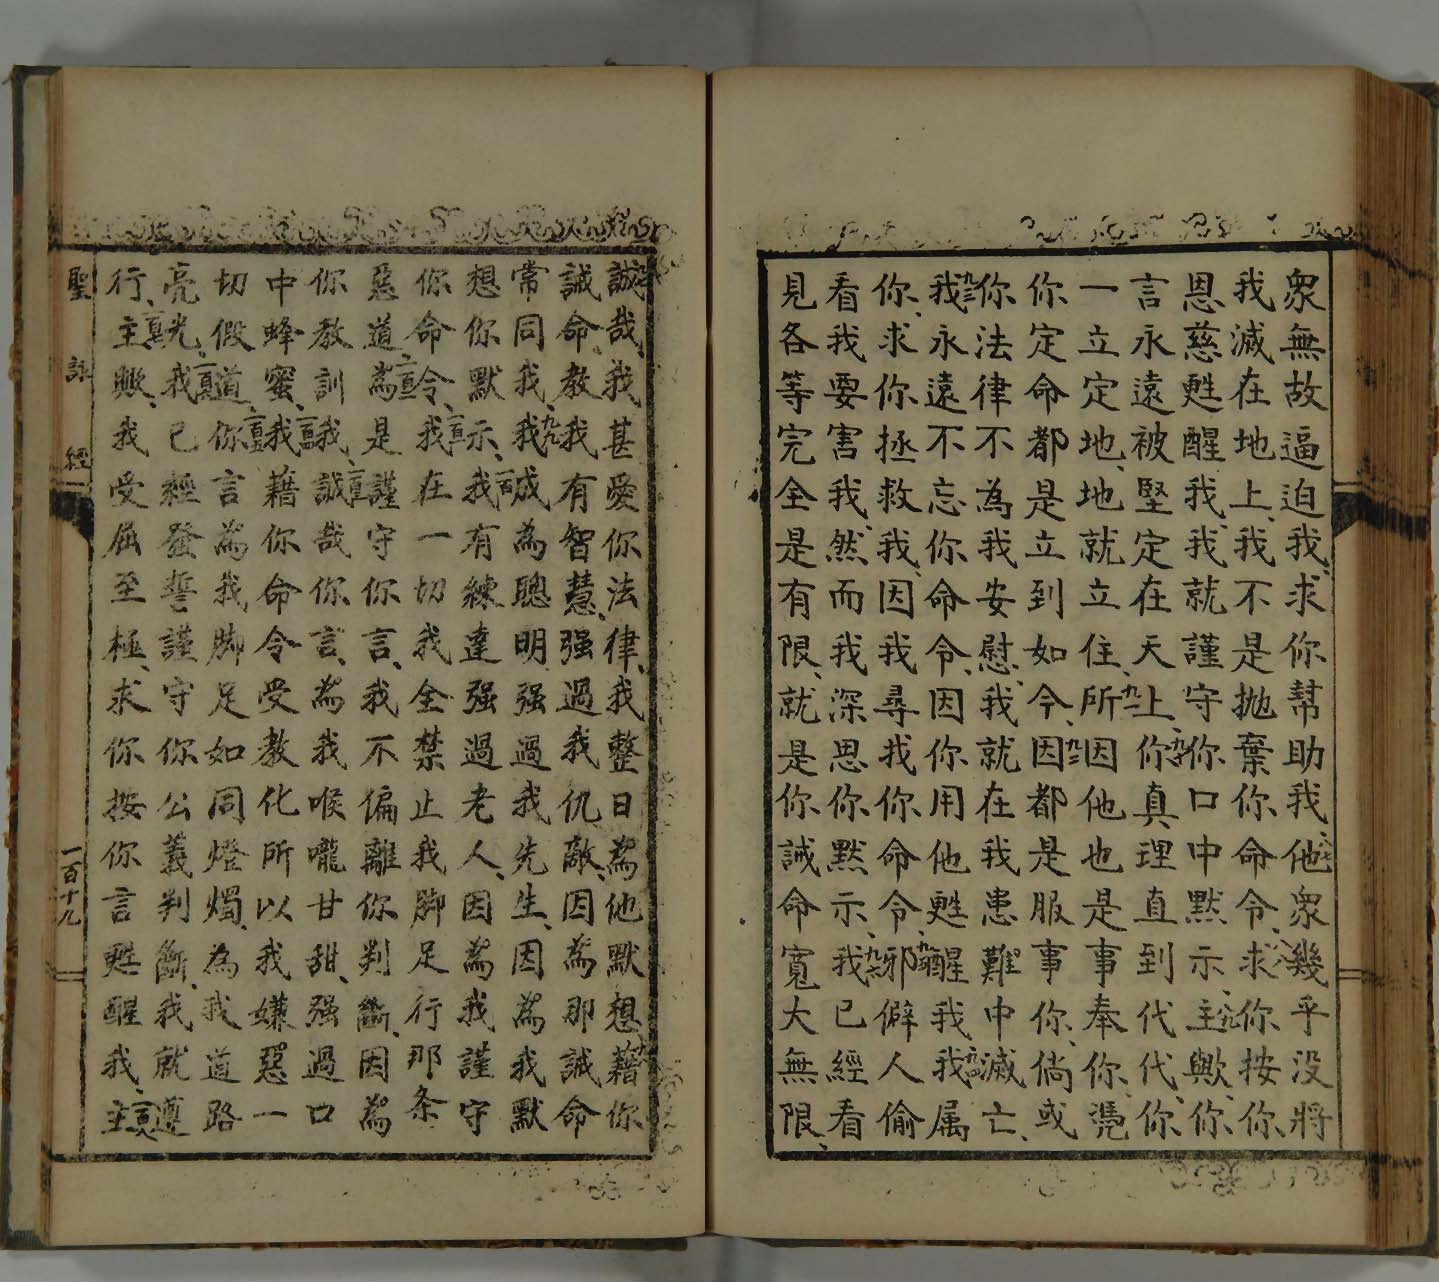 衆無故逼迫我、求你幫助我、他衆幾乎没將
我滅在地上、我不是抛棄你命令、求你按你、
恩慈甦醒我、我就謹守你口中默示、主歟、你、
言永遠被堅定在天上、你真理直到代代、你
一立定地、地就立住、所因他也是事奉你、憑
你定命都是立到如今、因都是服事你、倘或
你法律不為我安慰、我就在我患難中滅亡、
我永遠不忘你命令、因你用他甦醒我、我属
你、求你拯救我、因我尋我你命令、邪僻人偷
看我要害我、然而我深思你默示、我已經看
見各等完全是有限、就是你誡命寬大無限、
誠哉、我甚愛你法律、我整日為他默想、藉你
誡命、教我有智慧、强過我仇敵、因為那誡命
常同我、我成為聰明、强過我先生、因為我默
想你默示、我有練達强過老人、因為我謹守
你命令、我在一切我全禁止我脚足行那条
惡道、為是謹守你言、我不偏離你判斷、因為
你教訓我、誠哉你言、為我喉嚨甘甜、强過口
中蜂蜜、我藉你命令受教化所以我嫌惡一
切假道、你言為我脚足如同燈燭、為我道路
亮光、我已經發誓謹守你公義判斷、我就遵
行、主歟、我受屈至極、求你按你言甦醒我、主
聖詠經
一百十九